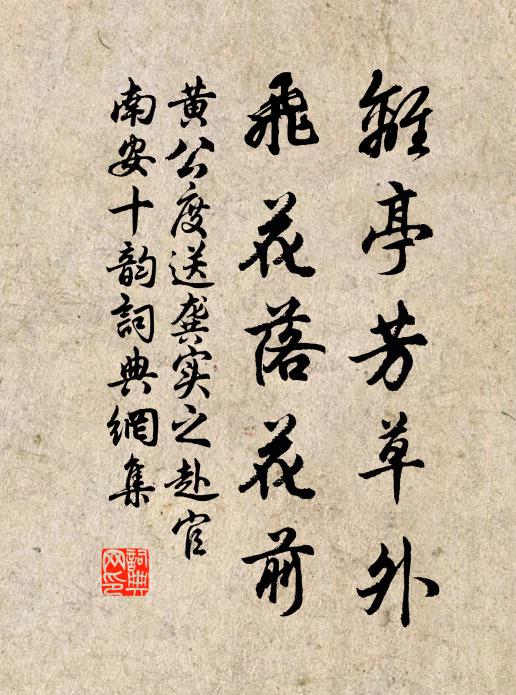 離亭芳草外
飛花落花前
黄公度送龚实之赴官
南安十韵詞典網集
詞典
网印